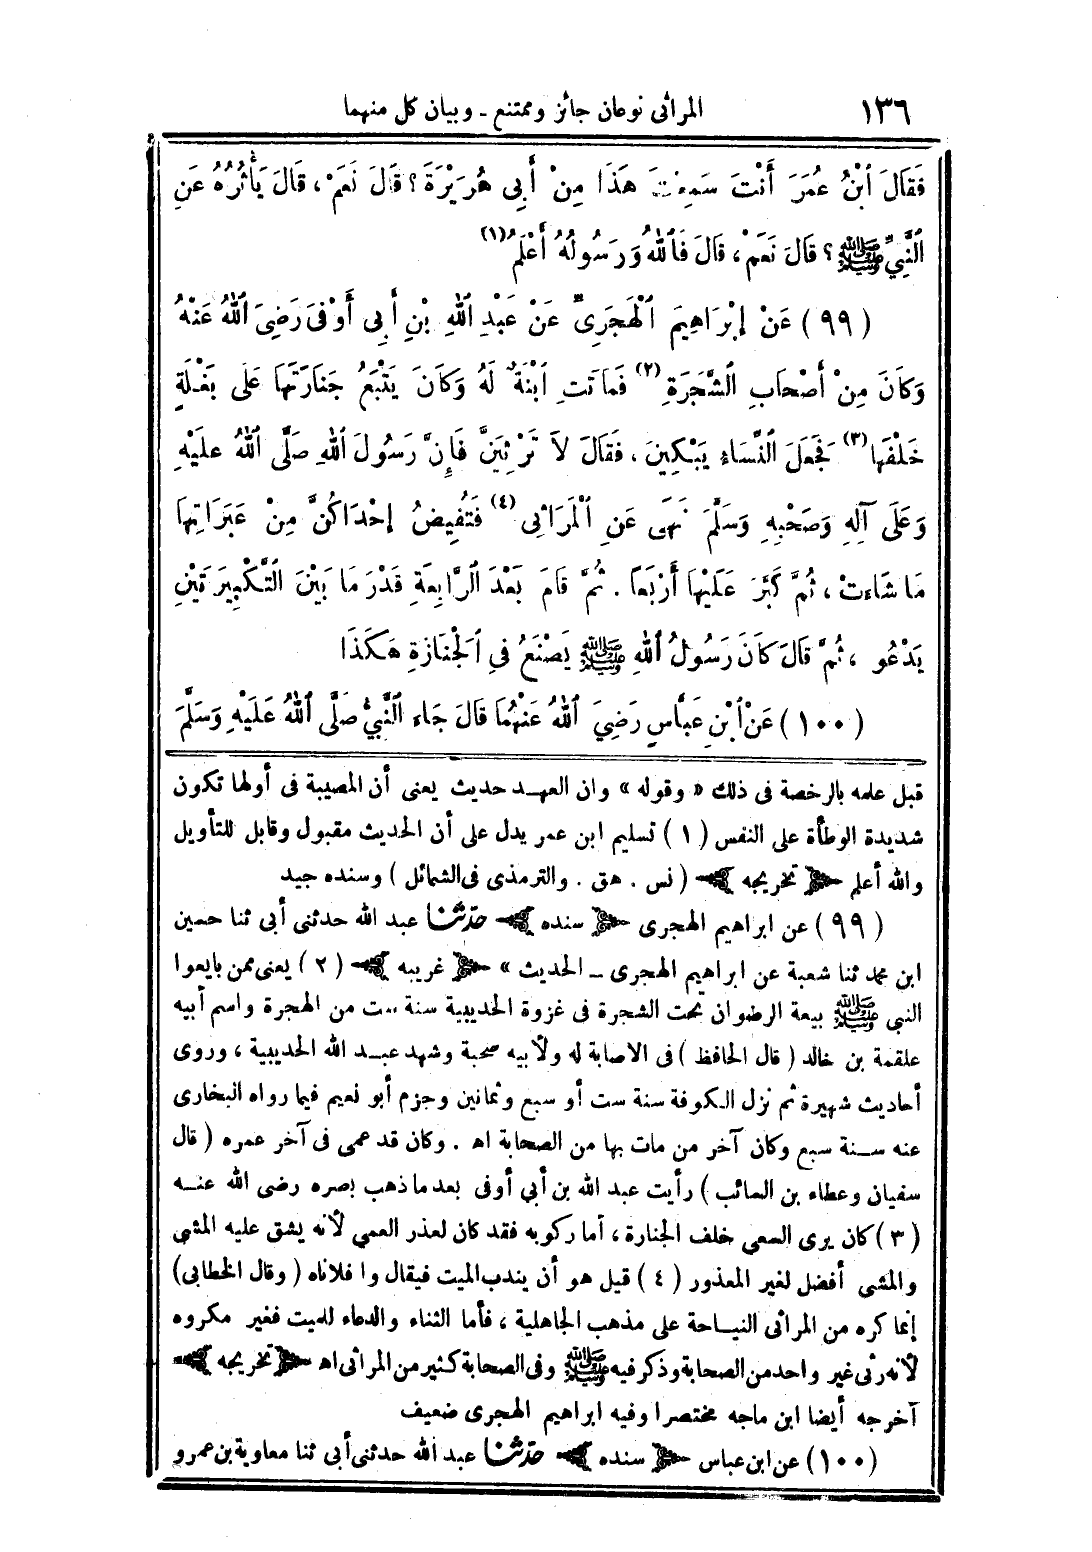 ١٣٦ المراثى نوعان جائز وممتنع ـ وبيان كل منهما
فَقَالَ ٱبْنُ عُمَرَ أَنْتَ سَمِعْتَ هَذَا مِنْ أَبِى هُرَيْرَةَ ؟ قَالَ نَعَمْ ، قَالَ يَأْثُرُهُ عَنِ
ٱلنَّبِيِّ ﷺ ؟ قَالَ نَعَمْ ، قَالَ فَٱللهُ وَرَسُولُهُ أَعْلَمُ (١)
(٩٩) عَنْ إِبْرَاهِيمَ ٱلْهَجَرِىِّ عَنْ عَبْدِ ٱللهِ بْنِ أَبِى أَوْفَى رَضِىَ ٱللهُ عَنْهُ
وَكَانَ مِنْ أَصْحَابِ ٱلشَّجَرَةِ (٢) فَمَاتَتِ ٱبْنَةٌ لَهُ وَكَانَ يَتْبَعُ جَنَازَتَهَا عَلَى بَغْلَةٍ
خَلْفَهَا (٣) فَجَعَلَ ٱلنِّسَاءُ يَبْكِينَ ، فَقَالَ لاَ تَرْثِينَّ فَإِنَّ رَسُولَ ٱللهِ صَلَّى ٱللهُ عَلَيْهِ
وَعَلَى آلِهِ وَصَحْبِهِ وَسَلَّمَ نَهَى عَنِ ٱلْمَرَاثِى (٤) فَتُفِيضُ إِحْدَاكُنَّ مِنْ عَبَرَاتِهَا
مَا شَاءَتْ ، ثُمَّ كَبَّرَ عَلَيْهَا أَرْبَعًا . ثُمَّ قَامَ بَعْدَ ٱلرَّابِعَةِ قَدْرَ مَا بَيْنَ ٱلتَّكْبِيرَتَيْنِ
يَدْعُو ، ثُمَّ قَالَ كَانَ رَسُولُ ٱللهِ ﷺ يَصْنَعُ فِى ٱلْجَنَازَةِ هَكَذَا
(١٠٠) عَنْ ٱبْنِ عَبَّاسٍ رَضِيَ ٱللهُ عَنْهُمَا قَالَ جَاءَ ٱلنَّبِيُّ صَلَّى ٱللهُ عَلَيْهِ وَسَلَّمَ
قبل علمه بالرخصة فى ذلك « وقوله » وان العهـد حديث يعنى أن المصيبة فى أولها تكون
شديدة الوطأة على النفس (١) تسليم ابن عمر يدل على أن الحديث مقبول وقابل للتأويل
والله أعلم ﴿ تخريجه ﴾ (نس . هق . والترمذى فى الشمائل) وسنده جيد
(٩٩) عن ابراهيم الهجرى ﴿ سنده ﴾ حدّثنا عبد الله حدثنى أبى ثنا حسين
ابن محمد ثنا شعبة عن ابراهيم الهجرى ـ الحديث » ﴿ غريبه ﴾ (٢) يعنى ممن بايعوا
النبى ﷺ بيعة الرضوان تحت الشجرة فى غزوة الحديبية سنة ست من الهجرة واسم أبيه
علقمة بن خالد (قال الحافظ) فى الاصابة له ولأبيه صحبة وشهد عبـد الله الحديبية ، وروى
أحاديث شهيرة ثم نزل الـكوفة سنة ست أو سبع وثمانين وجزم أبو نعيم فيما رواه البخارى
عنه سـنة سبع وكان آخر من مات بها من الصحابة اهـ . وكان قد عمى فى آخر عمره (قال
سفيان وعطاء بن السائب) رأيت عبد الله بن أبي أوفى بعد ما ذهب بصره رضى الله عنـه
(٣) كان يرى السعى خلف الجنازة ، أما ركوبه فقد كان لعذر العمي لأنه يشق عليه المشى
والمشى أفضل لغير المعذور (٤) قيل هو أن يندب الميت فيقال وا فلاناه (وقال الخطابى)
إنما كره من المراثى النيـاحة على مذهب الجاهلية ، فأما الثناء والدعاء للميت فغير مكروه
لأنه رثى غير واحد من الصحابة وذكر فيه ﷺ وفى الصحابة كثير من المراثى اهـ ﴿ تخريجه ﴾
آخرجه أيضا ابن ماجه مختصرا وفيه ابراهيم الهجرى ضعيف
(١٠٠) عن ابن عباس ﴿ سنده ﴾ حدّثنا عبد الله حدثنى أبى ثنا معاوية بن عمرو